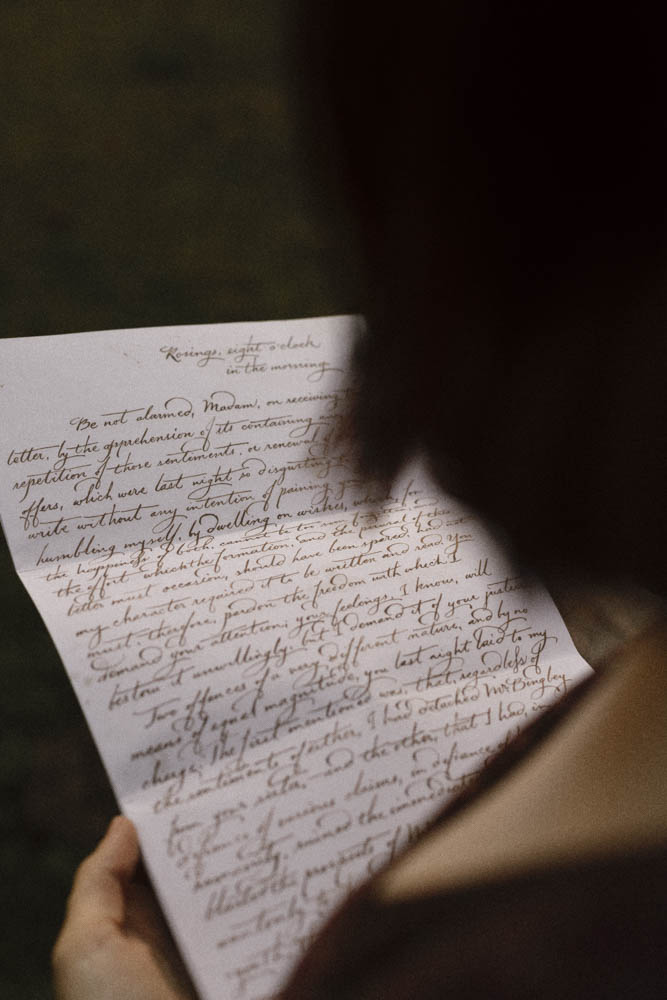 Rosings, eight o'clock
in the morning
Be not alarmed, Madam, on receiving
letter, by the apprehension of its containing any
repetition of those sentements, or renewal of
offers, which were last night so disgusting
write without any intention of paining you
humbling myself, by dwelling on wishes, for
the happiness of both, cannot be too
the effort which the formation, and the perusal of this
letter must occasion, should have been spared, had not
my character required it to be written and read. You
must, therefore, pardon the freedom with which I
demand your attention; your feelings, I know, will
bestow it unwillingly, but I demand it of your justice
Two offences of a very different nature, and by no
means of equal magnitude, you last night laid to my
charge. The first mentioned was, that, regardless of
the sentiments of either, I had detached Mr Bingley
from your sister, and the other, that I had, in
defiance of various claims, in defiance of
honour and, ruined the immediate
blasted the prospects of
wantonly to